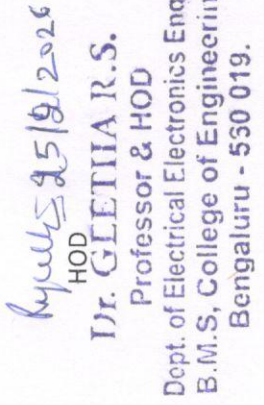 25/2/2026
HOD
Dr. GEETHA R.S.
Professor & HOD
Dept. of Electrical Electronics Eng
B.M.S, College of Engineerin
Bengaluru - 530 019.